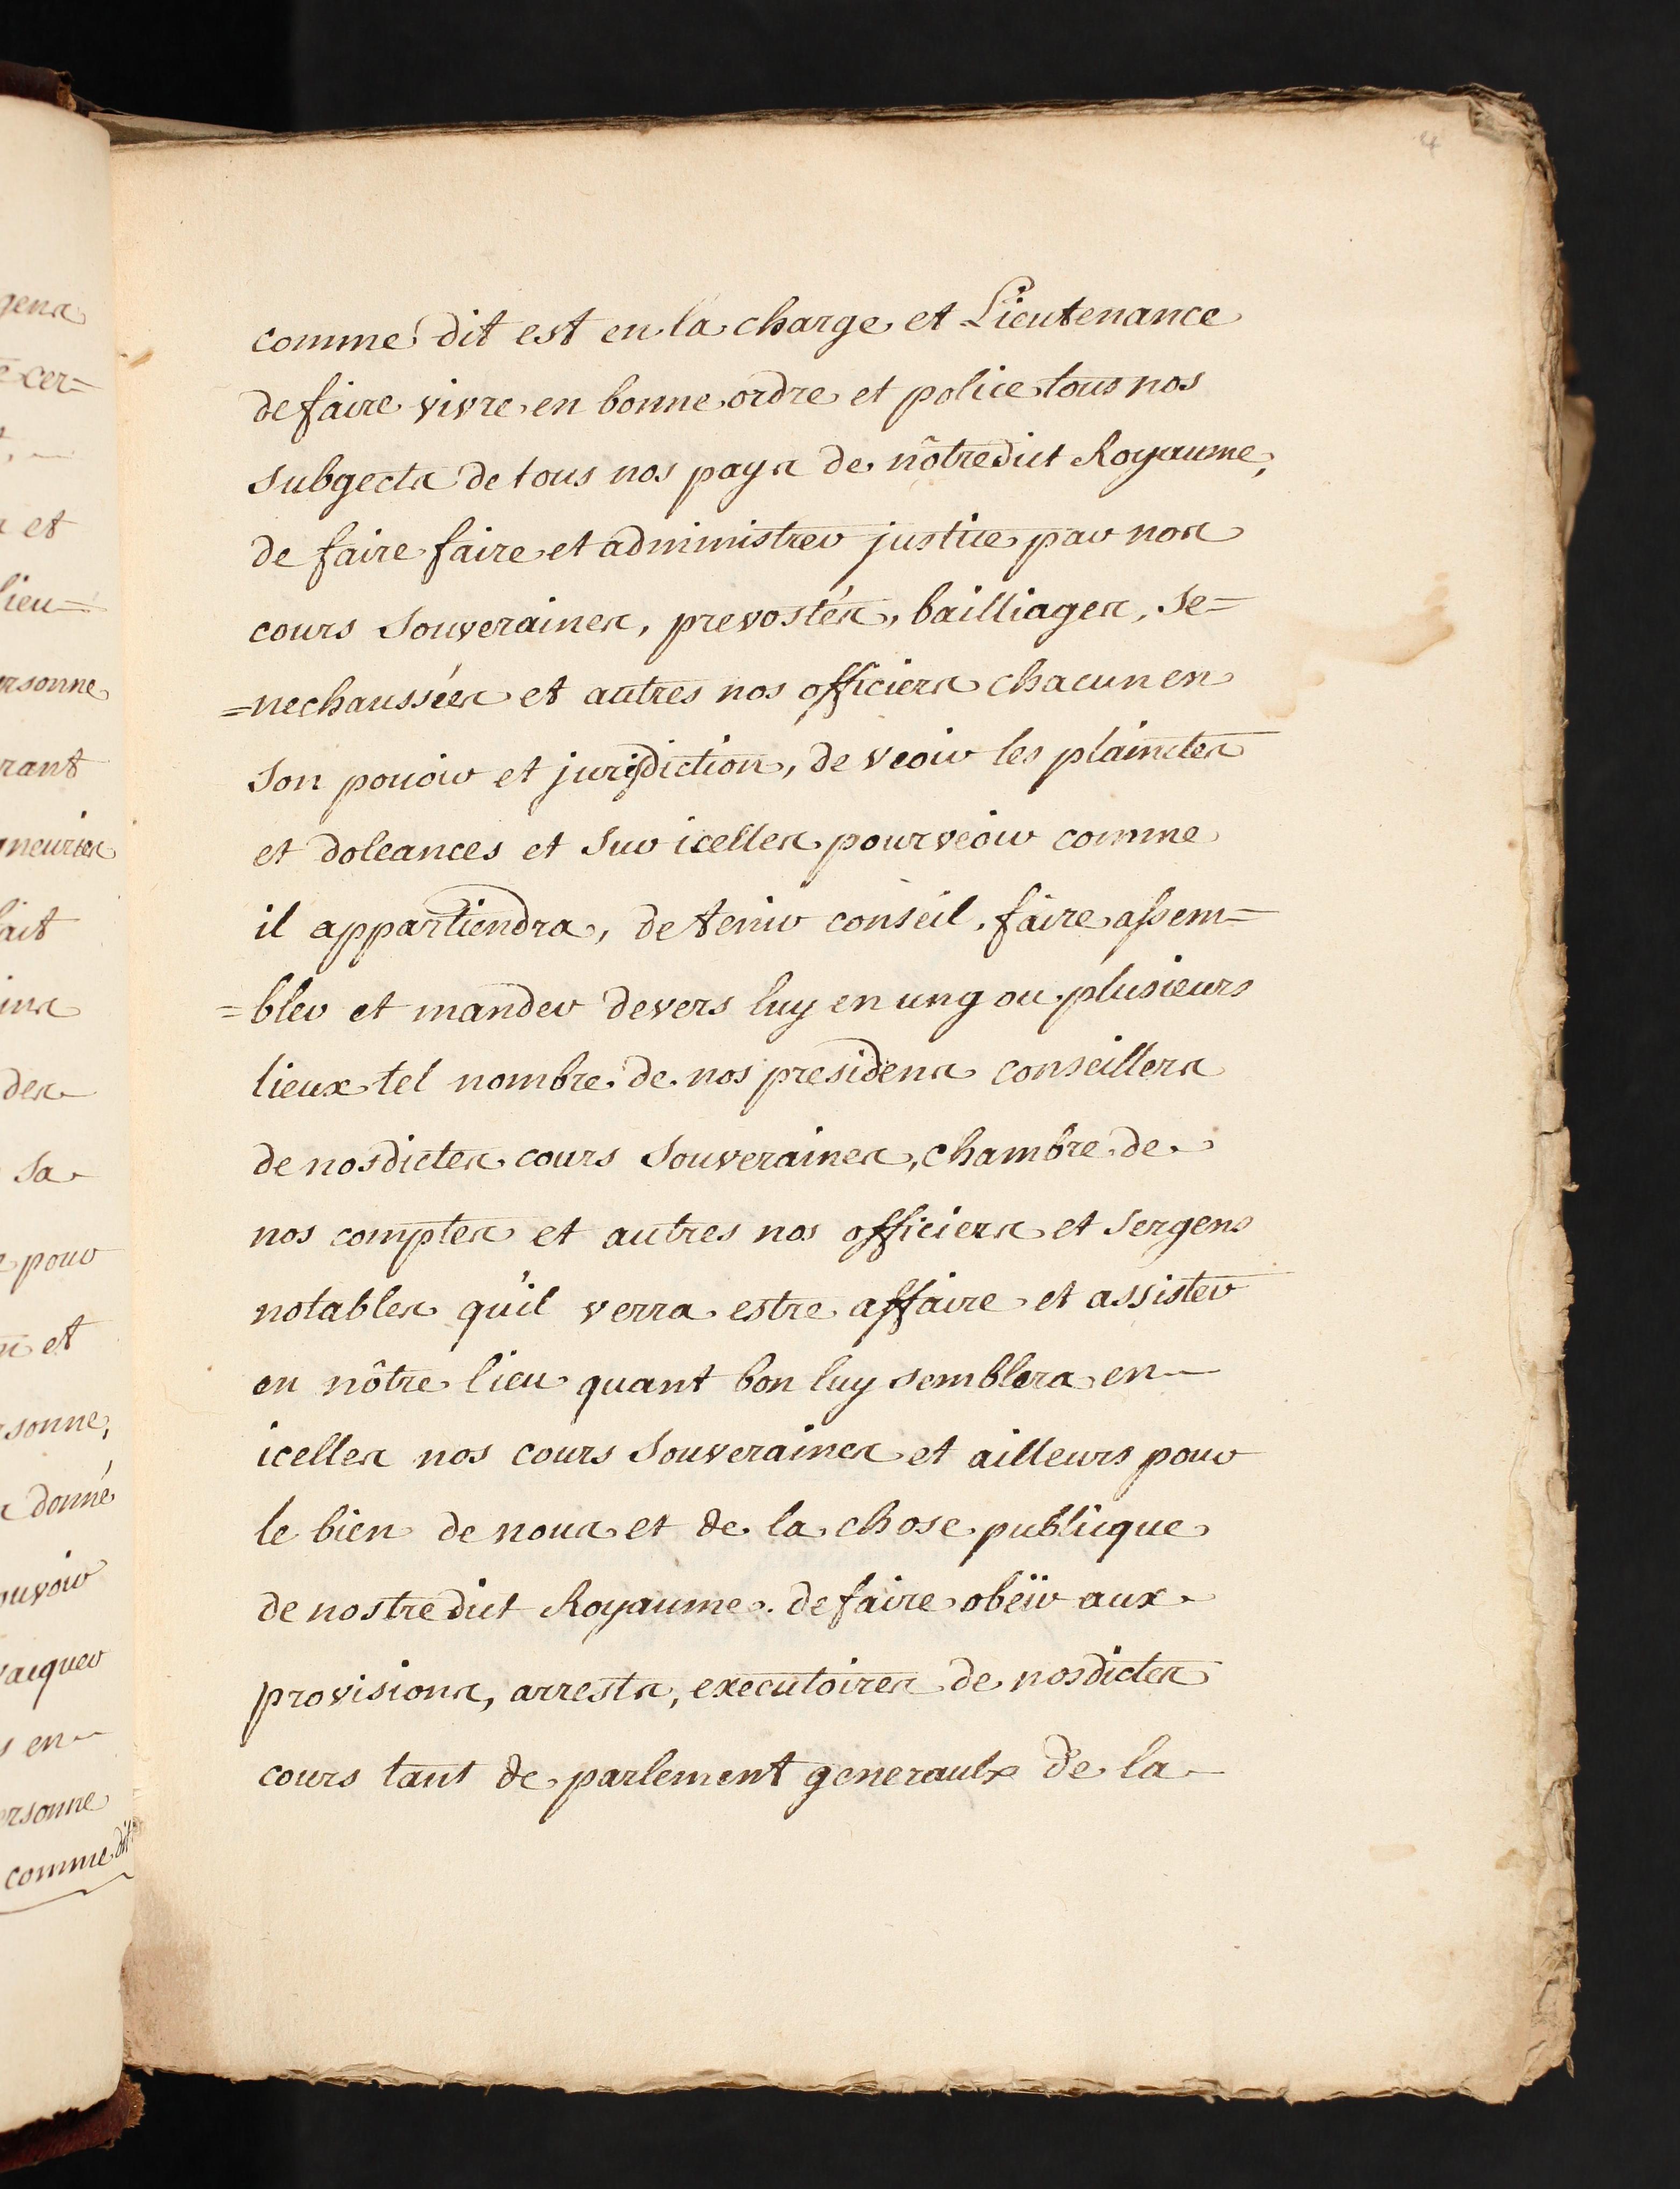 4
comme dit est en la charge et Lieutenance
de faire vivre en bonne ordre et police tous nos
subgects de tous nos pays de nôtredict Royaume,
de faire faire et administrer justice par nos
cours souveraines, prevostés, bailliages, se=
=nechaussées et autres nos officiers chacun en
son pouoir et jurisdiction, de veoir les plainctes
et doleances et sur icelles pourveoir comme
il appartiendra, de tenir conseil, faire assem=
=bler et mander devers luy en ung ou plusieurs
lieux tel nombre de nos presidens conseillers
de nosdictes cours souveraines, chambre de
nos comptes et autres nos officiers et sergens
notables qu'il verra estre affaire et assister
en nôtre lieu quant bon luy semblera en
icelles nos cours souveraines et ailleurs pour
le bien de nous et de la chose publicque
de nostredict Royaume. de faire obëir aux
provisions, arrests, executoires de nosdictes
cours tant de parlement generaulx de la
gens
cer=
et
lieu=
rant
ait
des
sa
pour
et
donné
en
comme dit